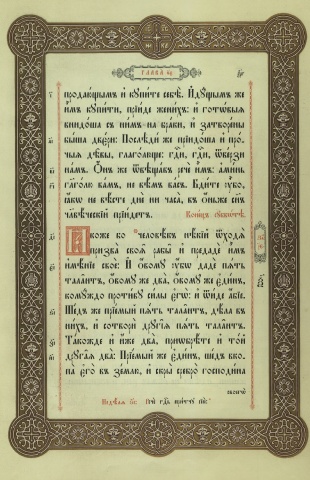 ГЛАВА к҃є
продаю́щымъ и҆ купи́те себѣ̀. И҆дꙋ́щымъ же
и҆̀мъ кꙋпи́ти, прїи́де жени́хъ: и҆ гото́выѧ
внидо́ша съ ни́мъ на бра́ки, и҆ затворе́ны
бы́ша двє́ри: Послѣди́ же прїидо́ша и҆ про́-
чыѧ дѣ̑вы, глаго́лющѧ: гдⷭ҇и, гдⷭ҇и, ѿве́рзи
на́мъ. Ѻ҆́нъ же ѿвѣща́въ речѐ и҆̀мъ: а҆ми́нь
глаго́лю ва́мъ, не вѣ́мъ ва́съ. Бди́те ᲂу҆̀бо,
ꙗ҆́кѡ не вѣ́сте днѐ ни часа̀, въ ѻ҆́ньже сн҃ъ
чл҃вѣ́ческїй прїи́детъ. Коне́цъ сꙋббѡ́тѣ.
Ꙗ҆́коже бо человѣ́къ нѣ́кїй ѿходѧ̀
призва̀ своѧ̑ рабы̑ и҆ предадѐ и҆̀мъ
и҆мѣ́нїе своѐ: И҆ ѻ҆́вомꙋ ᲂу҆́бѡ дадѐ пѧ́ть
тала̑нтъ, ѻ҆́вомꙋ же два̀, ѻ҆́вомꙋ же є҆ди́нъ,
комꙋ́ждо проти́вꙋ си́лы є҆гѡ̀: и҆ ѿи́де а҆́бїе.
Ше́дъ же прїе́мый пѧ́ть тала̑нтъ, дѣ́ла въ
ни́хъ, и҆ сотворѝ дрꙋгі̑ѧ пѧ́ть тала̑нтъ.
Та́кожде и҆ и҆́же два̀, приѡбрѣ́те и҆ то́й
дрꙋга̑ѧ два̀: Прїе́мый же є҆ди́нъ, ше́дъ вко-
па̀ є҆го̀ въ зе́млю, и҆ скры̀ сребро̀ господи́на